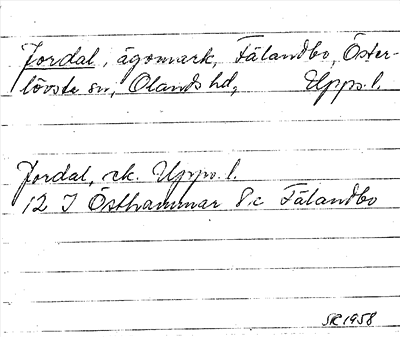 Jordal, ägomark, Fälandbo, Öster-
lövsta sn, Olands hd, Upps.l.
Jordal, ek. Upps.l.
12 I Östhammar 8c Fälandbo
SR 1958